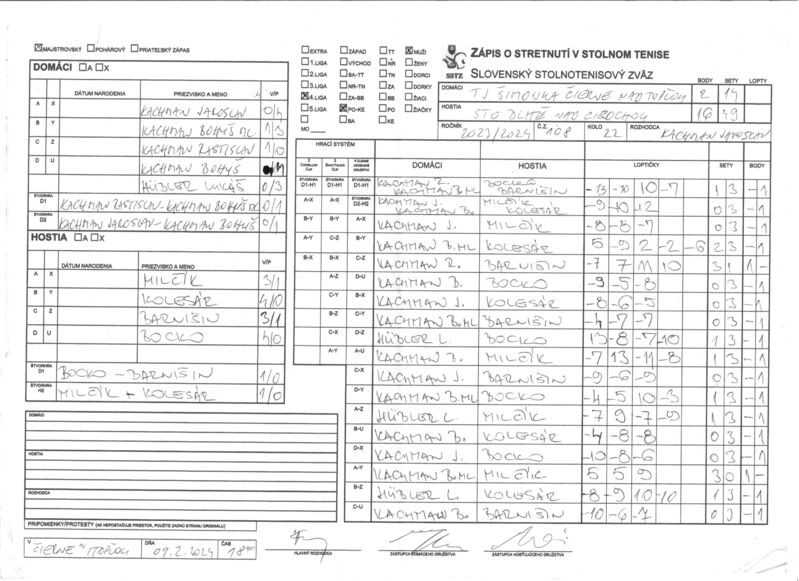 MAJSTROVSKÝ POHÁROVÝ PRIATEĽSKÝ ZÁPAS
EXTRA ZÁPAD TT MUŽI
1.LIGA VÝCHOD NR ŽENY
2.LIGA BA-TT TN DORCI
3.LIGA NR-TN ZA DORKY
4.LIGA ZA-BB BB ŽIACI
5.LIGA PO-KE PO ŽIAČKY
BA KE
MO
SSTZ
ZÁPIS O STRETNUTÍ V STOLNOM TENISE
SLOVENSKÝ STOLNOTENISOVÝ ZVÄZ
BODY SETY LOPTY
DOMÁCI TJ ŠIMONKA ČIERNE NAD TOPĽOU 2 14
HOSTIA STO DLHÉ NAD CIROCHOU 16 49
ROČNÍK 2023/2024 Č.Z. 108 KOLO 22 ROZHODCA KACHMAN JAROSLAV
DOMÁCI A X
DÁTUM NARODENIA PRIEZVISKO A MENO V/P
A X KACHMAN JAROSLAV 0/4
B Y KACHMAN BOHUŠ ML. 1/3
C Z KACHMAN RASTISLAV 1/0
D U KACHMAN BOHUŠ
HÜBLER LUKÁŠ 0/3
ŠTVORHRA D1 KACHMAN RASTISLAV-KACHMAN BOHUŠ ML 0/1
ŠTVORHRA D2 KACHMAN JAROSLAV-KACHMAN BOHUŠ 0/1
HOSTIA A X
DÁTUM NARODENIA PRIEZVISKO A MENO V/P
A X MILČÍK 3/1
B Y KOLESÁR 4/0
C Z BARNIŠIN 3/1
D U BOCKO 4/0
ŠTVORHRA D1 BOCKO - BARNIŠIN 1/0
ŠTVORHRA H2 MILČÍK + KOLESÁR 1/0
DOMÁCI
HOSTIA
ROZHODCA
PRIPOMIENKY/PROTESTY (AK NEPOSTAČUJE PRIESTOR, POUŽITE ZADNÚ STRANU ORIGINÁLU)
HRACÍ SYSTÉM
DOMÁCI HOSTIA LOPTIČKY SETY BODY
ŠTVORHRA D1-H1 ŠTVORHRA D1-H1 ŠTVORHRA D1-H1 KACHMAN R. KACHMAN B.ML BOCKO BARNIŠIN -13 -10 10 -7 1 3 -1
A-X A-X ŠTVORHRA D2-H2 KACHMAN J. KACHMAN B. MILČÍK KOLESÁR -9 -10 -12 0 3 -1
B-Y B-Y A-X KACHMAN J. MILČÍK -8 -8 -7 0 3 -1
A-Y C-Z B-Y KACHMAN B.ML KOLESÁR 5 -9 2 -2 -6 2 3 -1
B-X B-X C-Z KACHMAN R. BARNIŠIN -7 7 11 10 3 1 1-
A-Z D-U KACHMAN B. BOCKO -9 -5 -8 0 3 -1
C-Y B-X KACHMAN J. KOLESÁR -8 -6 -5 0 3 -1
B-Z C-Y KACHMAN B.ML BARNIŠIN -4 -7 -7 0 3 -1
C-X D-Z HÜBLER L. BOCKO 13 -8 -7 -10 1 3 -1
A-Y A-U KACHMAN B. MILČÍK -7 13 -11 -8 1 3 -1
C-X KACHMAN J. BARNIŠIN -9 -6 -9 0 3 -1
D-Y KACHMAN B.ML BOCKO -4 -5 10 -3 1 3 -1
A-Z HÜBLER L. MILČÍK -7 9 -7 -9 1 3 -1
B-U KACHMAN B. KOLESÁR -4 -8 -8 0 3 -1
D-X KACHMAN J. BOCKO -10 -8 -6 0 3 -1
A-Y KACHMAN B.ML MILČÍK 5 5 9 3 0 1-
B-Z HÜBLER L. KOLESÁR -8 -9 10 -10 1 3 -1
C-U KACHMAN B. BARNIŠIN -10 -6 -7 0 3 -1
V ČIERNE N/TOPĽOU DŇA 09.2.2024 ČAS 18
HLAVNÝ ROZHODCA ZÁSTUPCA DOMÁCEHO DRUŽSTVA ZÁSTUPCA HOSŤUJÚCEHO DRUŽSTVA